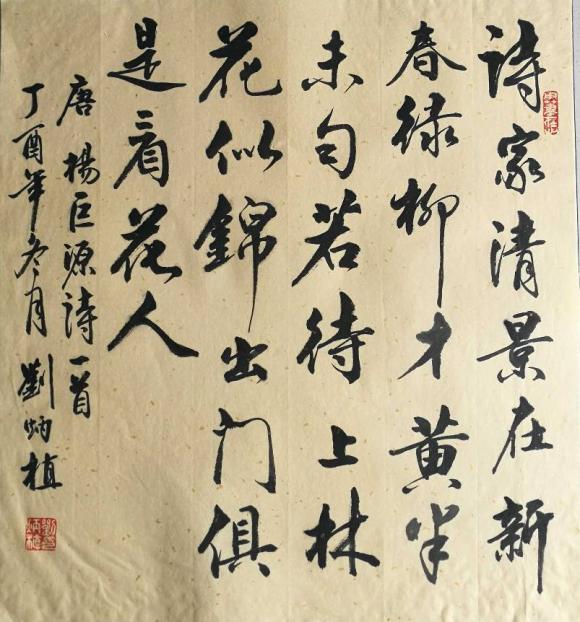 詩家清景在新
春绿柳才黄半
未匀若待上林
花似錦出门俱
是看花人
唐楊巨源詩一首
丁酉年冬月 劉炳植